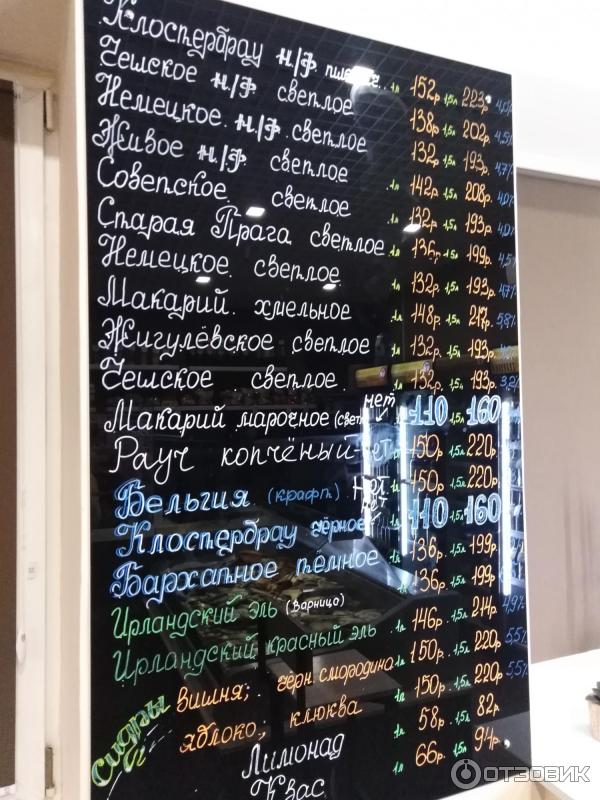 Клостербрау н/ф 1л 152р 1,5л 223р 4,0%
Чешское н/ф светлое 138р 1,5л 202р 4,5%
Немецкое н/ф светлое 132 1,5л 193р 4,7%
Живое н/ф светлое 1л 142р 1,5л 208р 4,0
Советское светлое 1л 132р 1,5л 193р 4,0
Старая Прага светлое 1л 136р 1,5л 199р 4,5
Немецкое светлое 1л 132р 1,5л 193р 4,7
Макарий хмельное 1л 148р 1,5л 217р 5,8%
Жигулёвское светлое 1л 132р 1,5л 193р
Чешское светлое 1л 132р 1,5л 193р 3,2
Макарий марочное (свет) нет 110 1,5л 160
Рауч копчёный нет 150р 1,5л 220р
Бельгия (крафт) нет 1л 150р 1,5л 220р
Клостербрау чёрное нет 110 1,5л 160
Бархатное тёмное 1л 136р 1,5л 199р
Ирландский эль (варница) 1л 136р 1,5л 199р
Ирландский красный эль 1л 146р 1,5л 214р 4,9%
Сидры
вишня; чёрн. смородина 1л 150р 1,5л 220р 5,5%
яблоко; клюква 1л 150р 1,5л 220р 5,5%
Лимонад 1л 58р 1,5л 82р
Квас 1л 66р 1,5л 94р
ОТЗОВИК